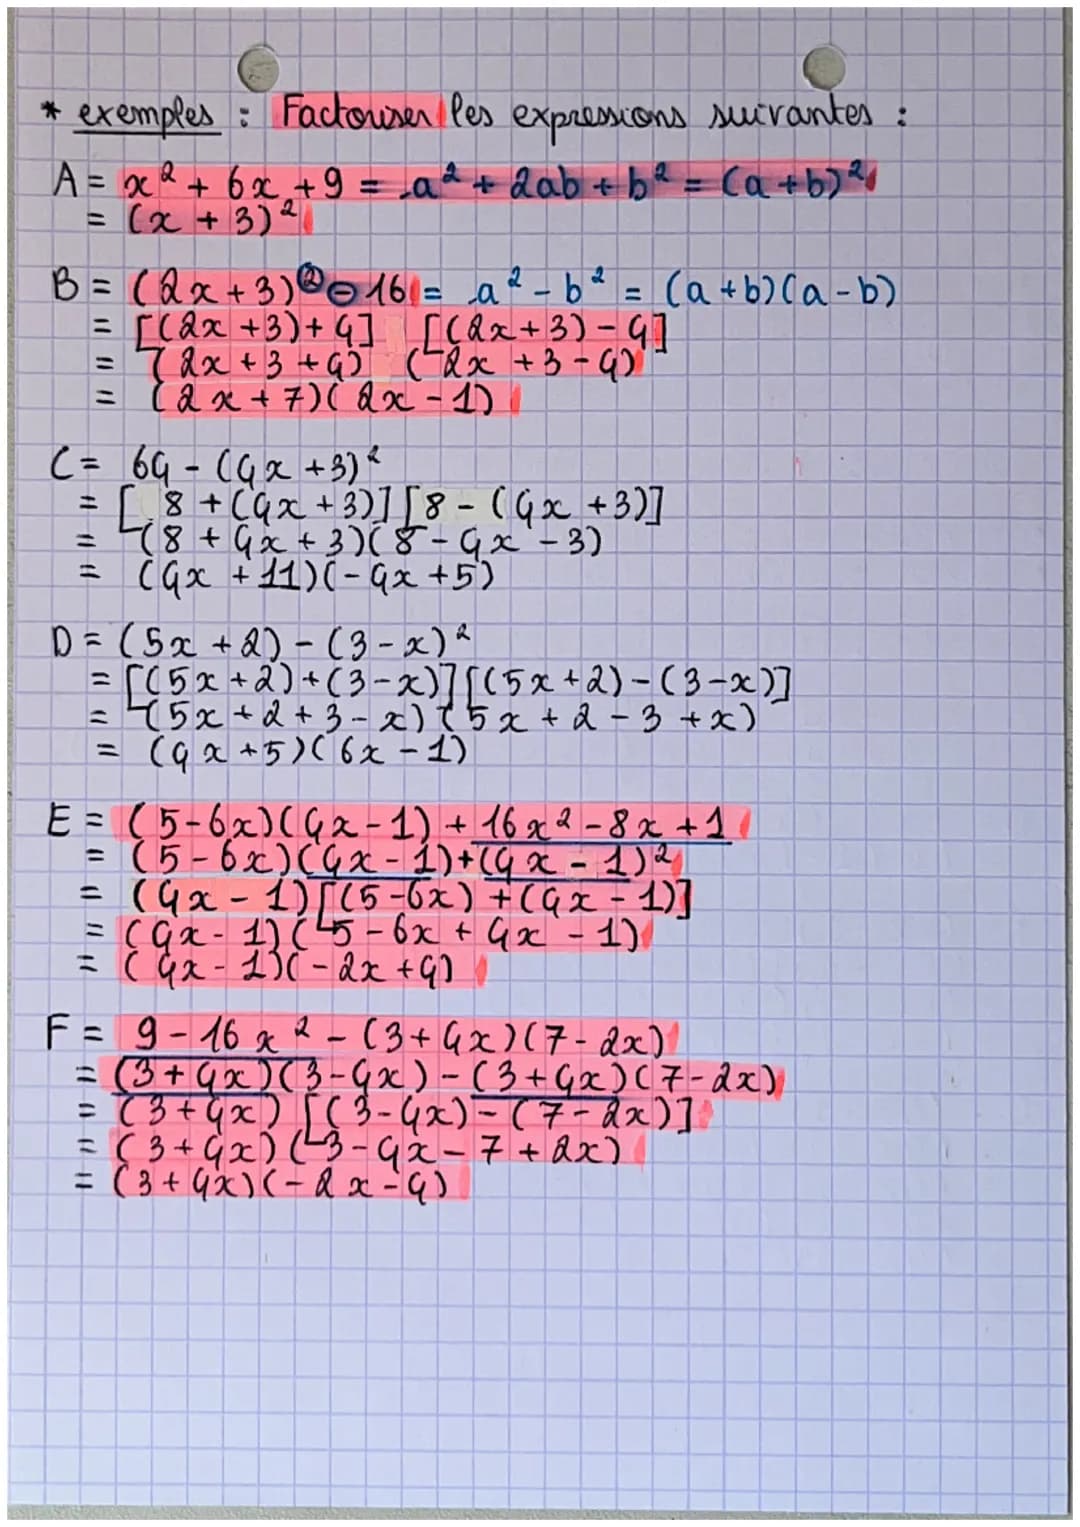 * exemples : Factoriser les expressions suivantes :
A = x² + 6x + 9 = a² + 2ab + b² = (a+b)²
= (x + 3)²
B = (2x+3)² - 16 = a² - b² = (a+b)(a-b)
= [(2x+3)+4] [(2x+3)-4]
= (2x+3+4) (2x+3-4)
= (2x+7)(2x-1)
C = 64 - (4x+3)²
= [8+(4x+3)][8-(4x+3)]
= (8+4x+3)(8-4x-3)
= (4x+11)(-4x+5)
D = (5x+2) - (3-x)²
= [(5x+2)+(3-x)][(5x+2)-(3-x)]
= (5x+2+3-x)(5x+2-3+x)
= (4x+5)(6x-1)
E = (5-6x)(4x-1) + 16x² - 8x + 1
= (5-6x)(4x-1)+(4x-1)²
= (4x-1)[(5-6x)+(4x-1)]
= (4x-1)(5-6x+4x-1)
= (4x-1)(-2x+4)
F = 9 - 16x² - (3+4x)(7-2x)
= (3+4x)(3-4x) - (3+4x)(7-2x)
= (3+4x) [(3-4x)-(7-2x)]
= (3+4x)(3-4x-7+2x)
= (3+4x)(-2x-4)